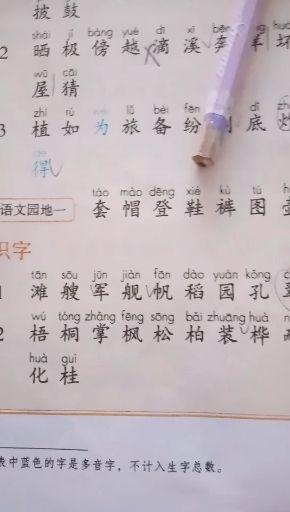 披 鼓
shài jí bàng yuè dī xī bēn
2 晒 极 傍 越 滴 溪 奔 羊 坏
wū cāi
屋 猜
zhí rú wéi lǚ bèi fēn dǐ
3 植 如 为 旅 备 纷 底
得
tào mào dēng xié kù tú
语文园地一 套 帽 登 鞋 裤 图
识字
tān sōu jūn jiàn fān dào yuán kǒng
1 滩 艘 军 舰 帆 稻 园 孔
wú tóng zhǎng fēng sōng bǎi zhuāng huà
2 梧 桐 掌 枫 松 柏 装 桦
huà guì
化 桂
表中蓝色的字是多音字，不计入生字总数。